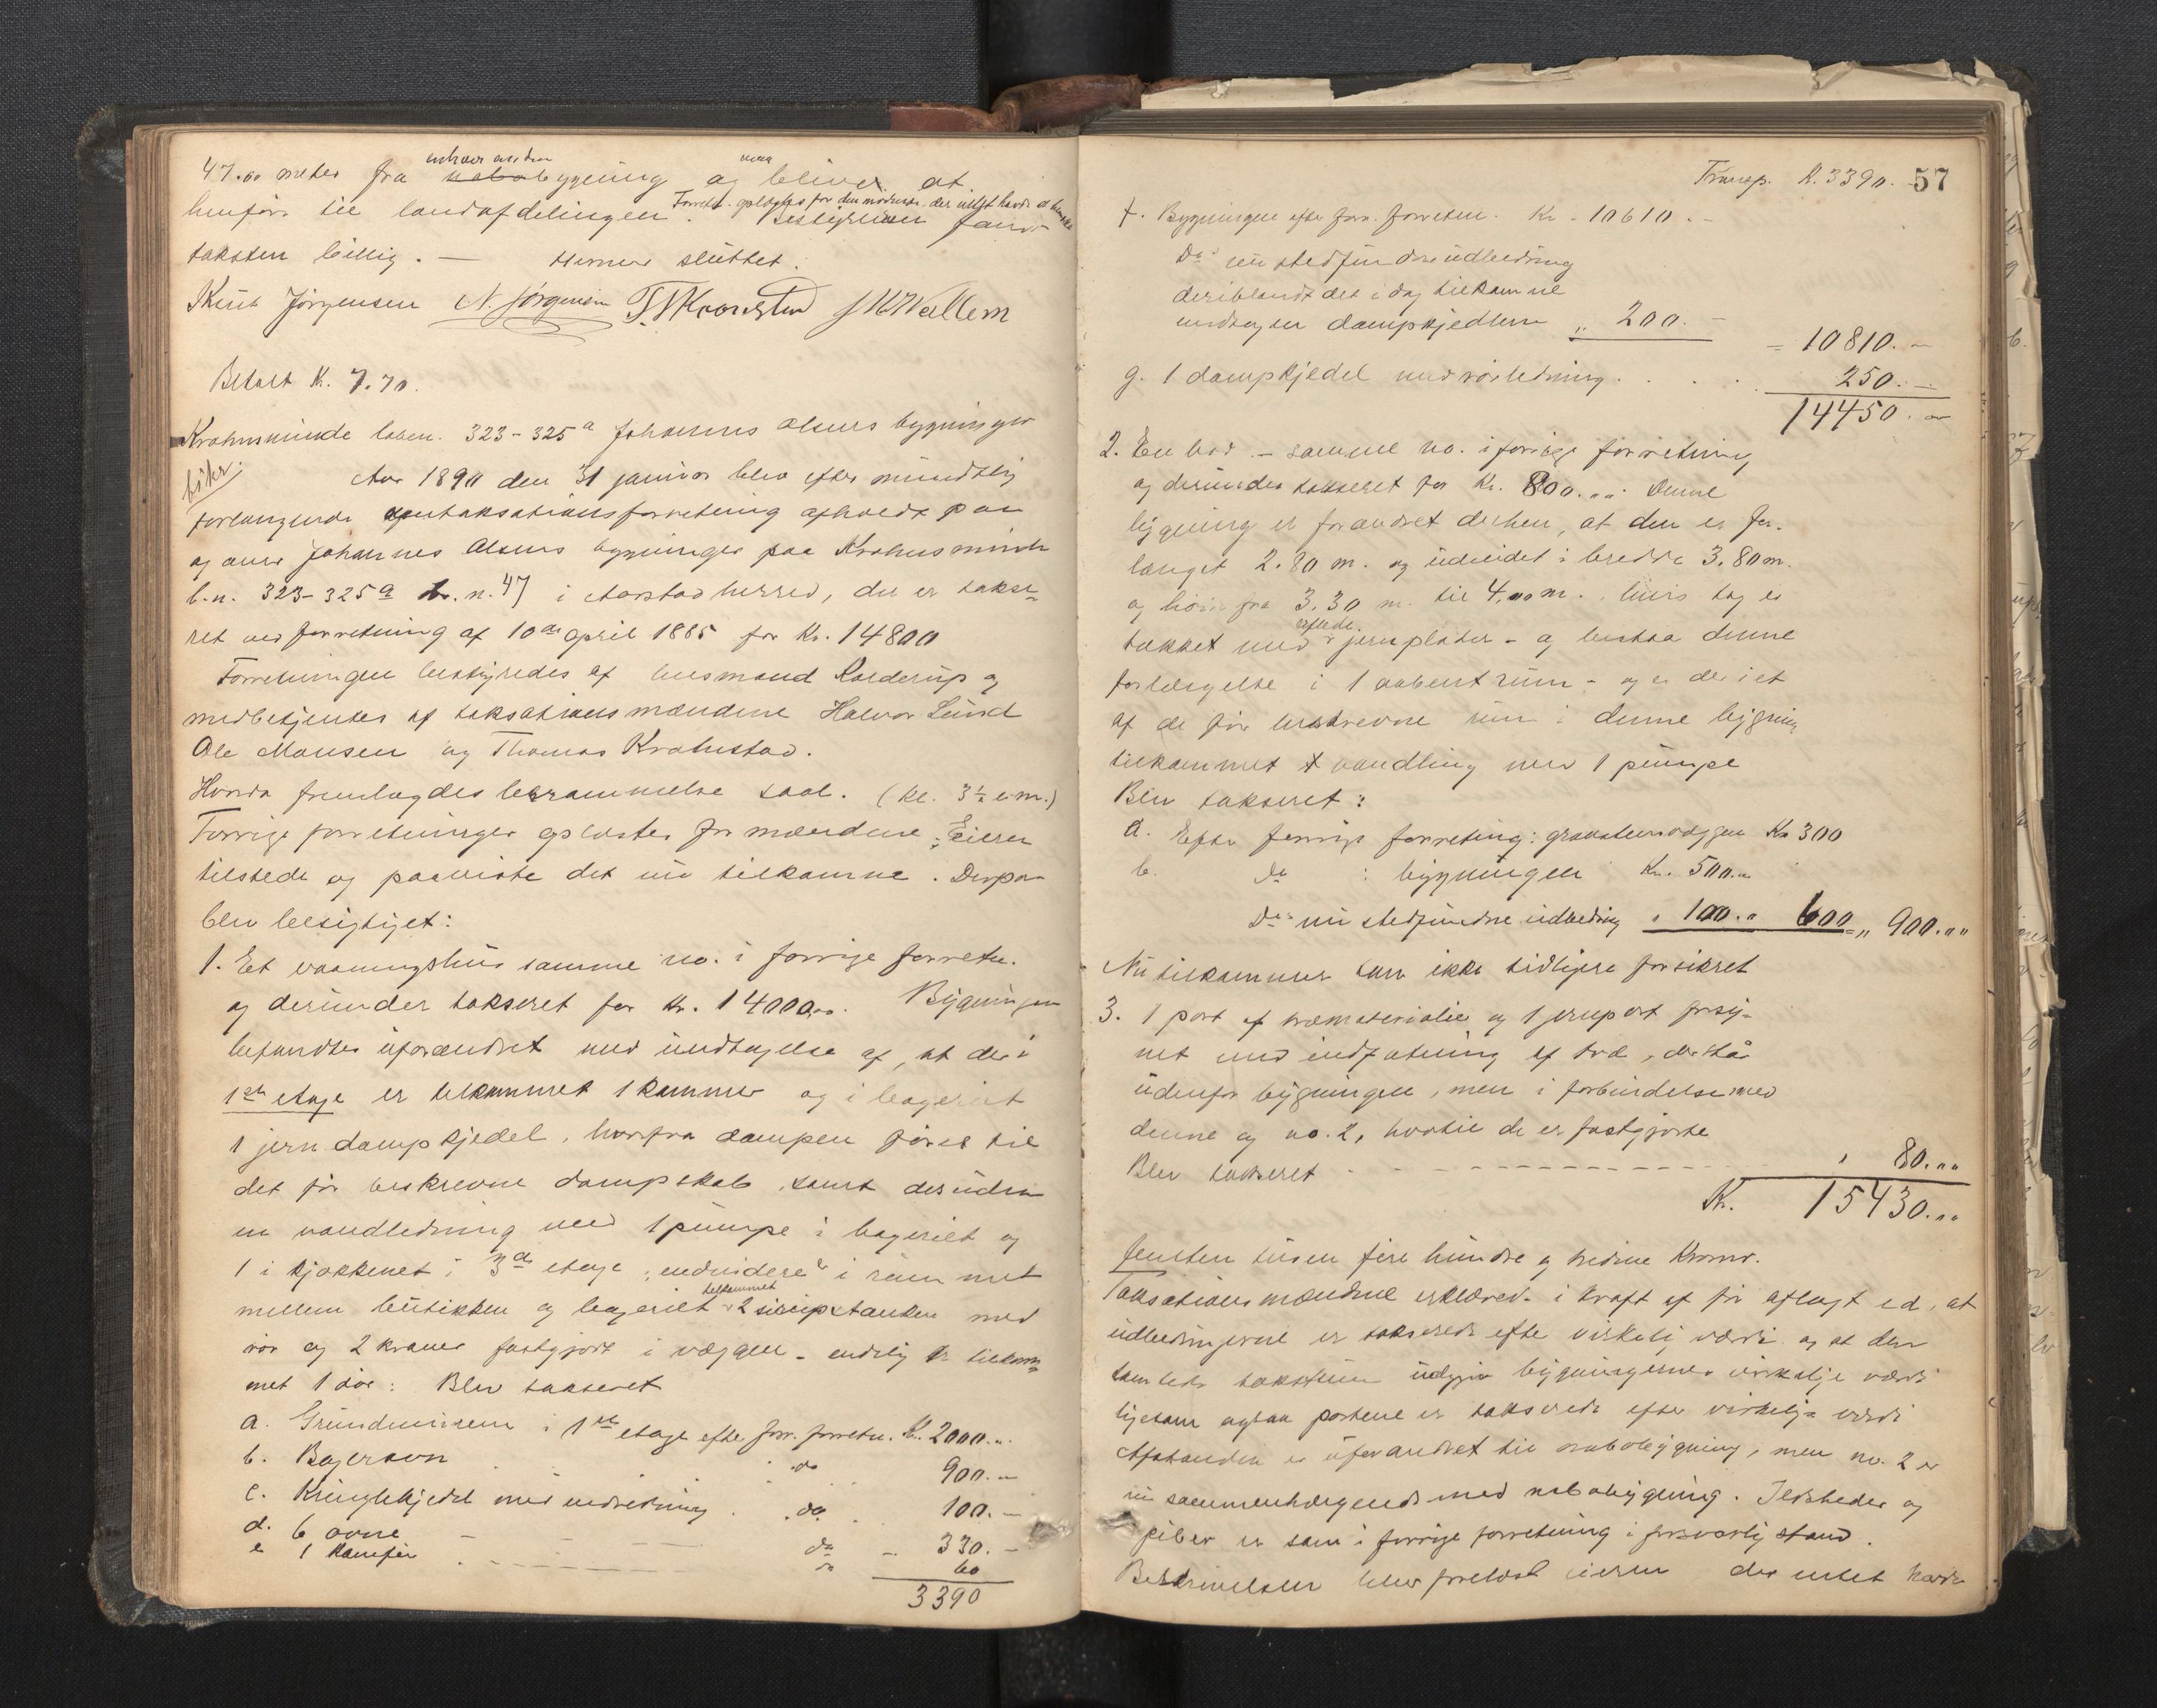 47.00 meter fra enhver anden nabobygning og maa blive at
henføre til landafdelingen. Forretn. oplæstes for den mødende, der intet havde at bemærke. Bestyreren fandt
taksten billig. — Herved sluttet.
Knut Jørgensen N. Jørgensen T. Krohnstad J K Wallem
Betalt Kr. 7.70.
Krohnsminde løben. 323-325 a Johannes Olsens bygninger
Aar 1890 den 31 januar blev efter mundtlig
forlangende omtaksationsforretning afholdt paa
og over Johannes Olsens bygninger paa Krohnsminde
b.n. 323-325 a br.n. 47 i Aarstad herred, der er takse-
ret ved forretning af 10de april 1885 for Kr. 14800
Forretningen bestyredes af lensmand Rolderup og
medbetjentes af taksationsmændene Halvor Lund
Ole Monsen og Thomas Krohnstad.
Hvorda fremlagdes berammelse saal. (kl. 3½ e.m.)
Forrige forretninger oplæstes for mændene. Eieren
tilstede og paaviste det nu tilkomne. Derpaa
blev besigtiget:
1. Et vaaningshus samme no. i forrige forretn.
og derunder takseret for Kr. 14000,00. Bygningen
befandtes uforandret med undtagelse af, at der i
1ste etage er tilkommet 1 kammer og i bageriet
1 jern dampkjedel, hvorfra dampen føres til
det før beskrevne dampskab, samt desuden
en vandledning med 1 pumpe i bageriet og
1 i kjøkkenet i 3de etage, endvidere i rummet
mellem butikken og bageriet tilkommet 2 sirupstanker med
rør og 2 kraner fastgjort i væggen - endelig er tilkom-
met 1 dør: Blev takseret
a. Grundmuren i 1ste etage efter forr. forretn. Kr. 2000.„
b. Bagerovn . . do . 900.—
c. Kringlekjedel med indretning . do . 100.—
d. 6 ovne — — do — 330.—
e 1 komfur . — — do 60
3390
Transp. K. 3390. 57
f. Bygningen efter forr. forretn. Kr - 10610.-
Do nu stedfundne udbedring
deriblandt det i dag tilkomne
undtagen dampkjedlen „ 200.—
= 10810.—
g. 1 dampkjedel med rørledning . . . . 250.—
14450.
2. En bod.— samme no. i forrige forretning
og derunder takseret for Kr. 800.„. Denne
bygning er forandret derhen, at den er for-
længet 2.80 m. og udvidet i bredde 3.80 m.
og høide fra 3.30 m. til 4,00 m., hvis tag er
tækket med riflede jernplader - og bestaar denne
forlængelse i 1 aabent rum - og er der i et
af de før beskrevne rum i denne bygning
tilkommet 1 vandledning med 1 pumpe
Blev takseret:
a. Efter forrige forretning: graastensvæggen Kr 300
b. do : bygningen Kr. 500.„
Do nu stedfundne udbedring „ 100.„ 600 = „ 900.„„
Nu tilkommer som ikke tidligere forsikret
3. 1 port af træmaterialier og 1 jernport forsy-
net med indfatning af træ, der står
udenfor bygningen, men i forbindelse med
denne og no. 2, hvortil de er fastgjorte
Blev takseret - - - - - - - - „ 80.„„
Kr. 15430.„„
femten tusen fire hundre og tredive Kroner.
Taksationsmændene erklærede i kraft af før aflagt ed, at
udbedringerne er takserede efter virkelig værdi og at den
samlede takstsum udgjør bygningernes virkelige værdi
ligesom ogsaa portene er takserede efter virkelig værdi
Afstanden er uforandret til nabobygning, men no. 2 er
nu sammenhængende med nabobygning. Ildsteder og
piber er som i forrige forretning i forsvarlig stand.
Beskrivelsen blev forelæst eieren der intet havde